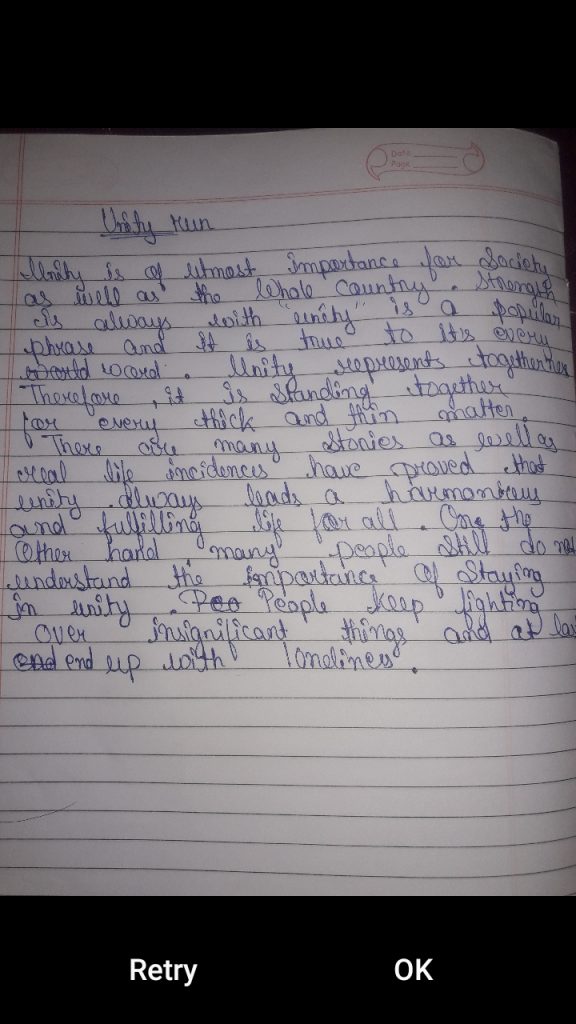 Date
Page
Unity run
Unity is of utmost importance for Society
as well as the whole country. Strength
is always with "unity" is a popular
phrase and it is true to it's every
world word. Unity represents togetherness
Therefore, it is standing together
for every thick and thin matter.
There are many stories as well as
real life incidences have proved that
unity always leads a harmonious
and fulfilling life for all. One the
Other hand many people still do not
understand the importance of Staying
in unity. Peo People keep fighting
over insignificant things and at last
end end up with loneliness.
Retry OK